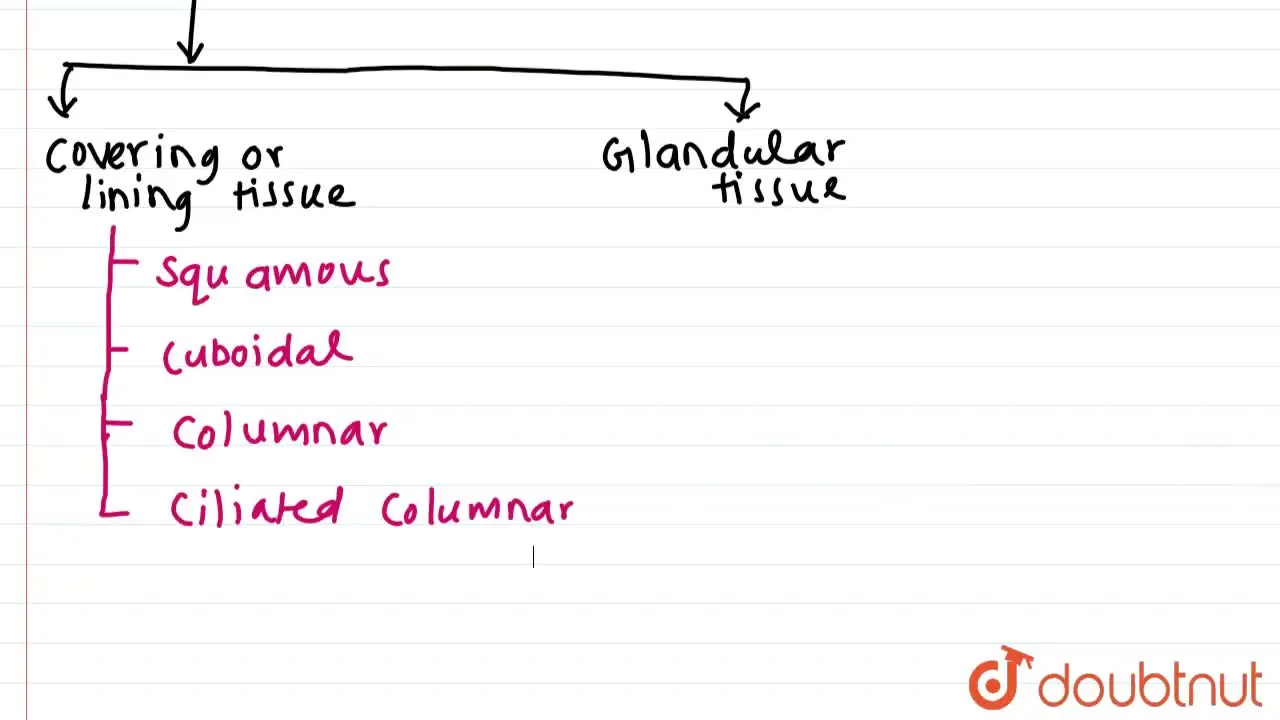 Covering or
lining tissue
Glandular
tissue
Squamous
Cuboidal
Columnar
Ciliated Columnar
doubtnut